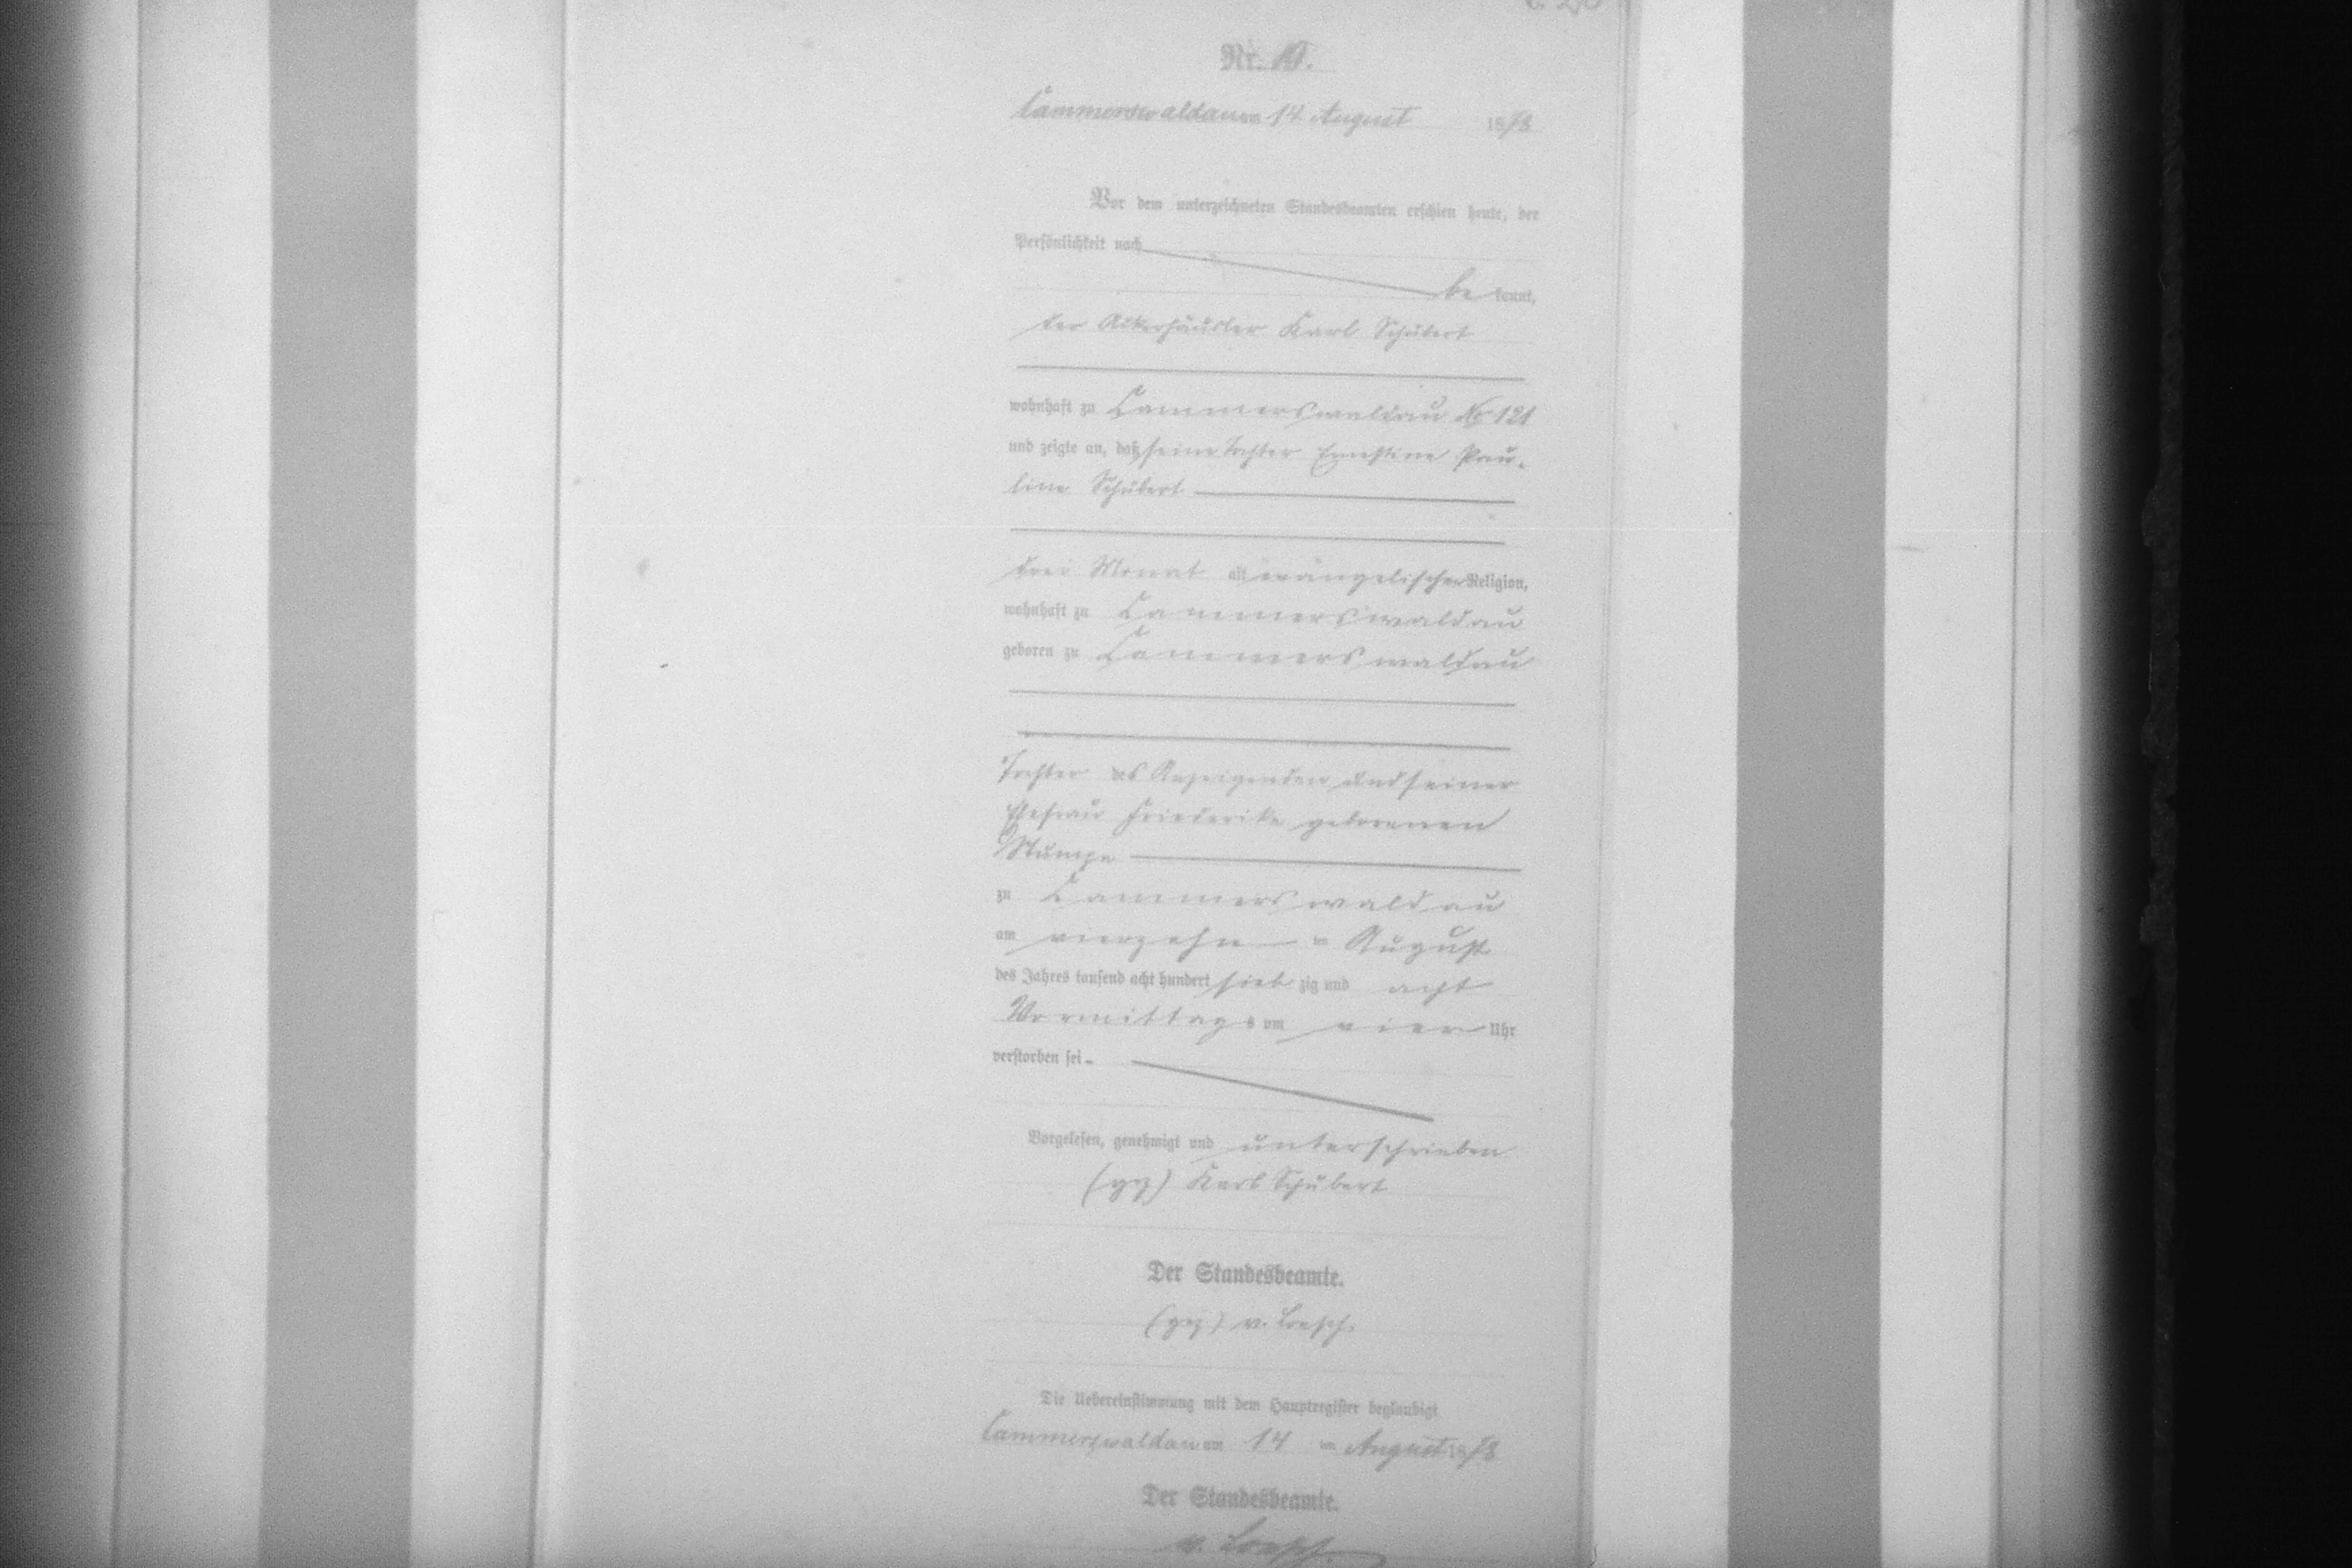 Nr. 19.
Cammerswaldau am 14. August 1878
Vor dem unterzeichneten Standesbeamten erschien heute, der
Persönlichkeit nach
be kannt,
der Ackerhäusler Karl Schubert
wohnhaft zu Cammerswaldau No 121
und zeigte an, daß seine Tochter Ernestine Pau-
line Schubert
drei Monat alt evangelischer Religion,
wohnhaft zu Cammerswaldau
geboren zu Cammerswaldau
Tochter des Anzeigenden und seiner
Ehefrau Friederike geborenen
Stumpe
zu Cammerswaldau
am vierzehn ten August
des Jahres tausend acht hundert sieb zig und acht
Vormittags um vier Uhr
verstorben sei
Vorgelesen, genehmigt und unterschrieben
(gez) Karl Schubert
Der Standesbeamte.
(gez) v. Loesch.
Die Uebereinstimmung mit dem Hauptregister beglaubigt
Cammerswaldau am 14 ten August 1878
Der Standesbeamte.
v. Loesch.